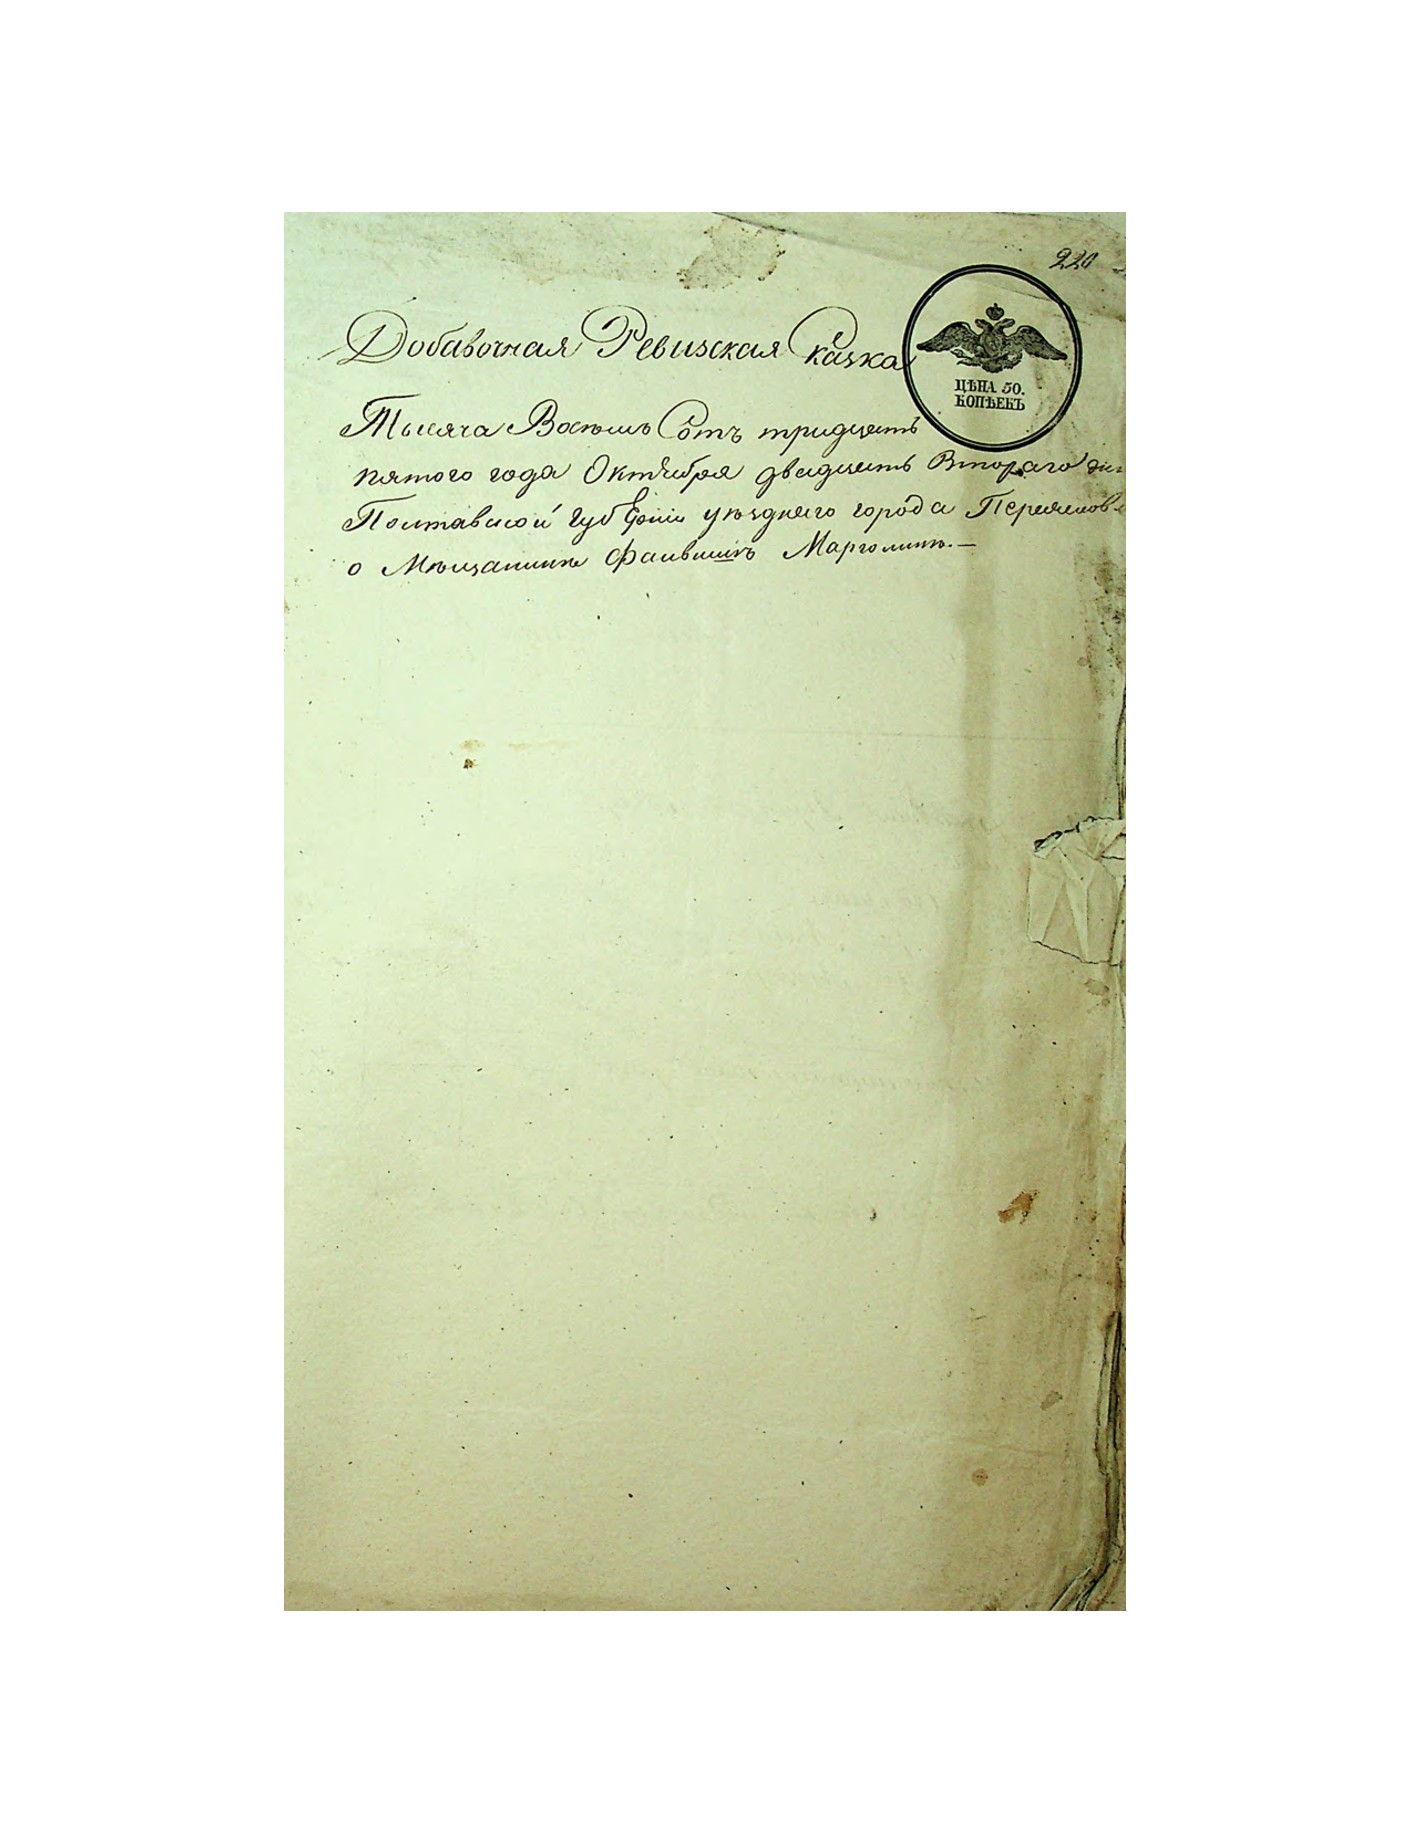 220
Добавочная Ревизская Сказка
ЦѢНА 50.
КОПѢЕКЪ
Тысяча Восемь Сотъ тридцать
пятого года Октября двадцать Втораго дня
Полтавской Губерніи уѣзднаго города Переяслова
о Мѣщанинѣ Фаивишѣ Марголинѣ.—